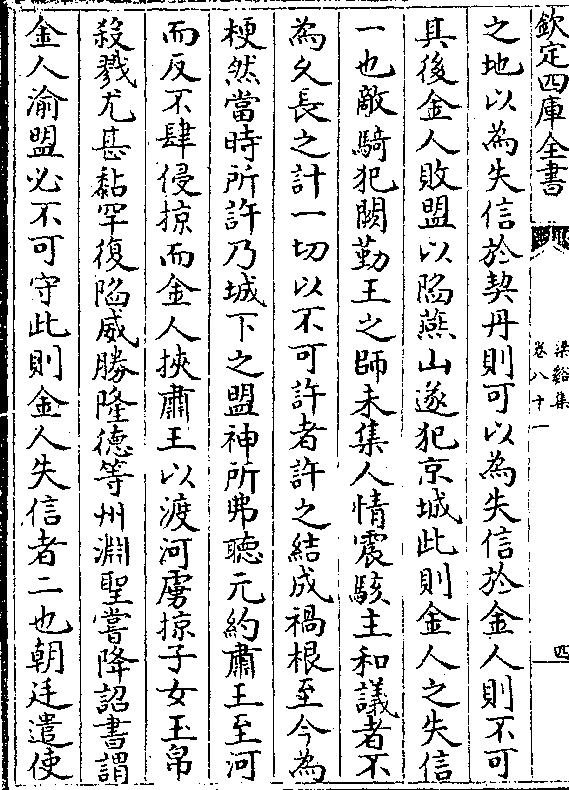 欽定四庫全書
梁谿集
卷八十一
四
之地以為失信於契丹則可以為失信於金人則不可
其後金人敗盟以陷燕山遂犯京城此則金人之失信
一也敵騎犯闕勤王之師未集人情震駭主和議者不
為久長之計一切以不可許者許之結成禍根至今為
梗然當時所許乃城下之盟神所弗聽元約肅王至河
而反不肆侵掠而金人挾肅王以渡河虜掠子女玉帛
殺戮尤甚黏罕復陷威勝隆德等州淵聖嘗降詔書謂
金人渝盟必不可守此則金人失信者二也朝廷遣使